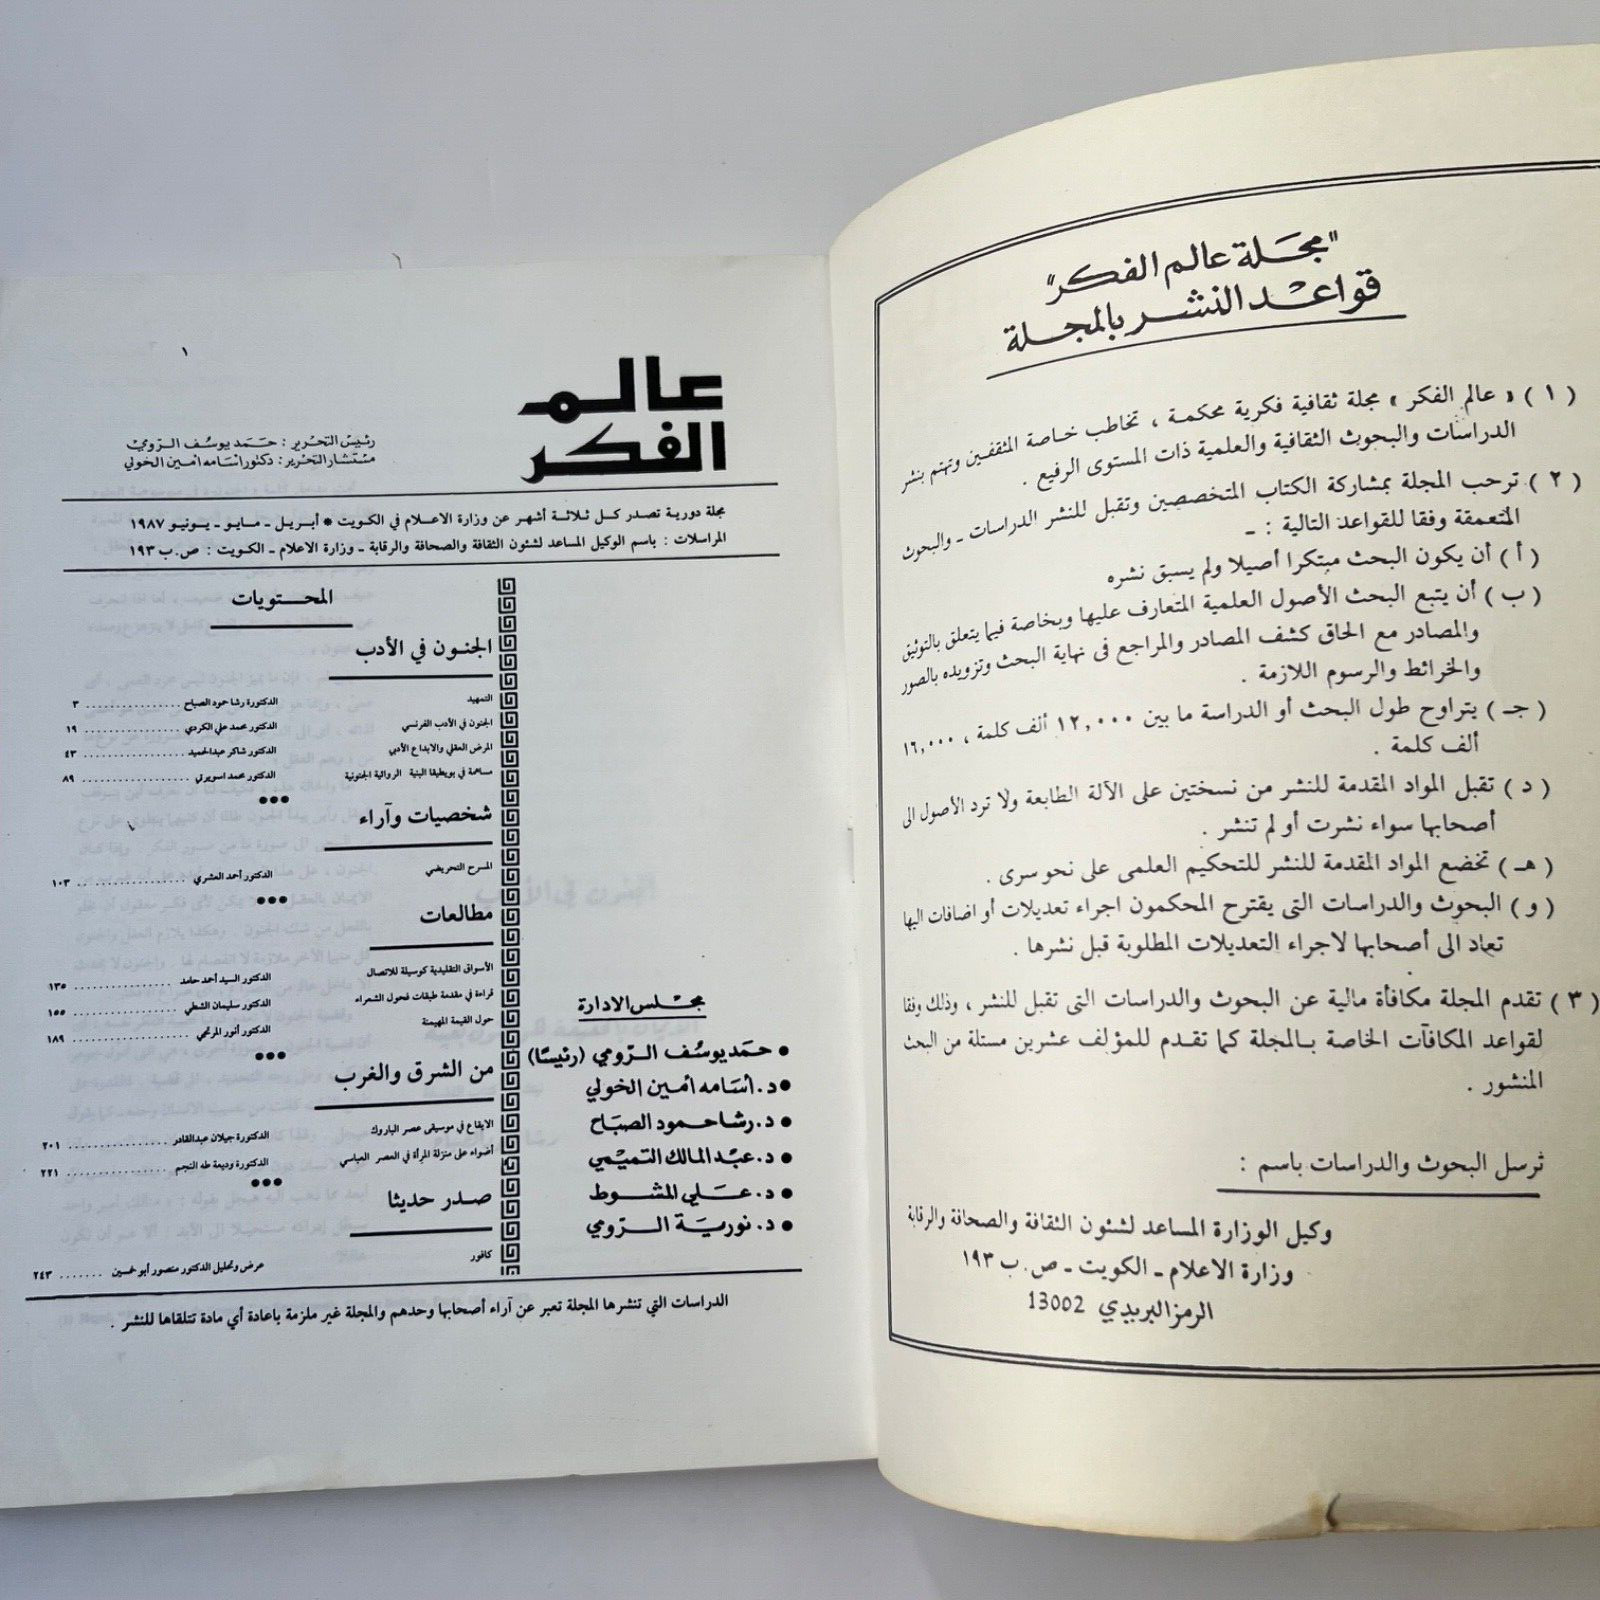 "مجلة عالم الفكر"
قواعد النشر بالمجلة
( ١ ) « عالم الفكر » مجلة ثقافية فكرية محكمة ، تخاطب خاصة المثقفين وتهتم بنشر
الدراسات والبحوث الثقافية والعلمية ذات المستوى الرفيع .
( ٢ ) ترحب المجلة بمشاركة الكتاب المتخصصين وتقبل للنشر الدراسات ـ والبحوث
المتعمقة وفقا للقواعد التالية : ـ
( أ ) أن يكون البحث مبتكرا أصيلا ولم يسبق نشره
( ب ) أن يتبع البحث الأصول العلمية المتعارف عليها وبخاصة فيما يتعلق بالتوثيق
والمصادر مع الحاق كشف المصادر والمراجع فى نهاية البحث وتزويده بالصور
والخرائط والرسوم اللازمة .
( جـ ) يتراوح طول البحث أو الدراسة ما بين ١٢,٠٠٠ ألف كلمة ، ١٦,٠٠٠
ألف كلمة .
( د ) تقبل المواد المقدمة للنشر من نسختين على الآلة الطابعة ولا ترد الأصول الى
أصحابها سواء نشرت أو لم تنشر .
( هـ ) تخضع المواد المقدمة للنشر للتحكيم العلمى على نحو سرى .
( و ) البحوث والدراسات التى يقترح المحكمون اجراء تعديلات أو اضافات اليها
تعاد الى أصحابها لاجراء التعديلات المطلوبة قبل نشرها .
( ٣ ) تقدم المجلة مكافأة مالية عن البحوث والدراسات التى تقبل للنشر ، وذلك وفقا
لقواعد المكافآت الخاصة بالمجلة كما تقدم للمؤلف عشرين مستلة من البحث
المنشور .
ترسل البحوث والدراسات باسم :
وكيل الوزارة المساعد لشئون الثقافة والصحافة والرقابة
وزارة الاعلام ـ الكويت ـ ص.ب ١٩٣
الرمز البريدي 13002
١
عالم
الفكر
رئيس التحرير : حمد يوسف الرومي
مستشار التحرير : دكتور اسامه امين الخولي
مجلة دورية تصدر كل ثلاثة أشهر عن وزارة الاعلام في الكويت * أبريل ـ مايو ـ يونيو ١٩٨٧
المراسلات : باسم الوكيل المساعد لشئون الثقافة والصحافة والرقابة ـ وزارة الاعلام ـ الكويت : ص.ب ١٩٣
مجلس الادارة
• حمد يوسف الرومي (رئيسًا)
• د. أسامه أمين الخولي
• د. رشا حمود الصباح
• د. عبد المالك التميمي
• د. علي المشوط
• د. نورية الرومي
المحتويات
الجنون في الأدب
التمهيد الدكتورة رشا حمود الصباح ٣
الجنون في الأدب الفرنسي الدكتور محمد علي الكردي ١٩
المرض العقلي والابداع الأدبي الدكتور شاكر عبدالحميد ٤٣
مساهمة في بويطيقا البنية الروائية الجنونية الدكتور محمد اسويرتي ٨٩
شخصيات وآراء
المسرح التحريضي الدكتور أحمد العشري ١٠٣
مطالعات
الأسواق التقليدية كوسيلة للاتصال الدكتور السيد أحمد حامد ١٣٥
قراءة في مقدمة طبقات فحول الشعراء الدكتور سليمان الشطي ١٥٥
حول القيمة المهيمنة الدكتور أنور المرتجي ١٨٩
من الشرق والغرب
الايقاع في موسيقى عصر الباروك الدكتورة جيلان عبدالقادر ٢٠١
أضواء على منزلة المرأة في العصر العباسي الدكتورة وديعة طه النجم ٢٢١
صدر حديثا
كافور عرض وتحليل الدكتور منصور أبو خمسين ٢٤٣
الدراسات التي تنشرها المجلة تعبر عن آراء أصحابها وحدهم والمجلة غير ملزمة باعادة أي مادة تتلقاها للنشر .